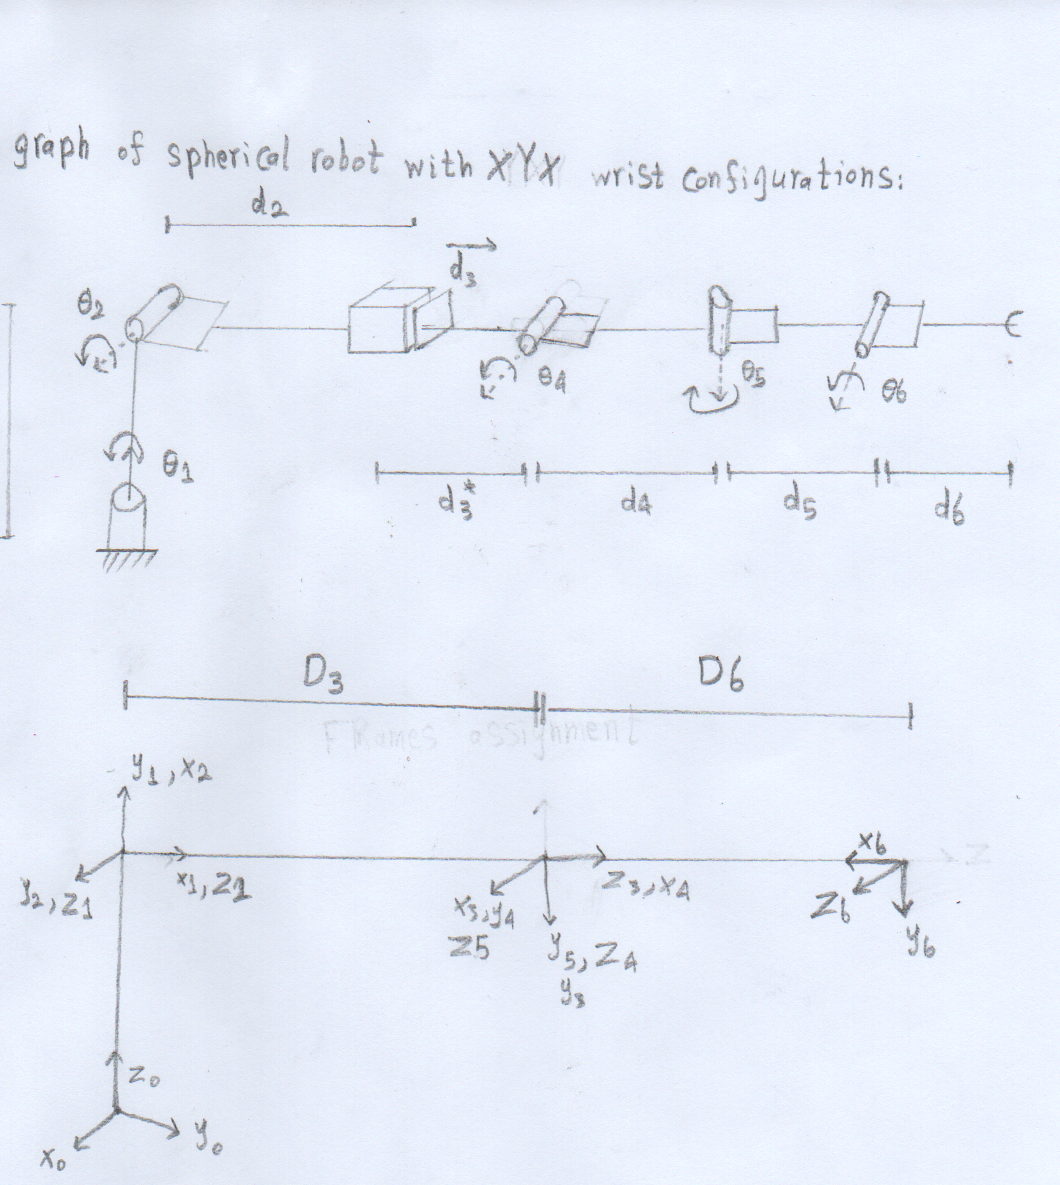 graph of spherical robot with XYX wrist configurations:
d2
d3
θ2
θ4
θ5
θ6
θ1
d3*
d4
d5
d6
D3
D6
FRames assignment
y1, x2
x6
z
y2, z1
x1, z2
z3, x4
x3, y4
z5
y5, z4
y3
z6
y6
z0
y0
x0